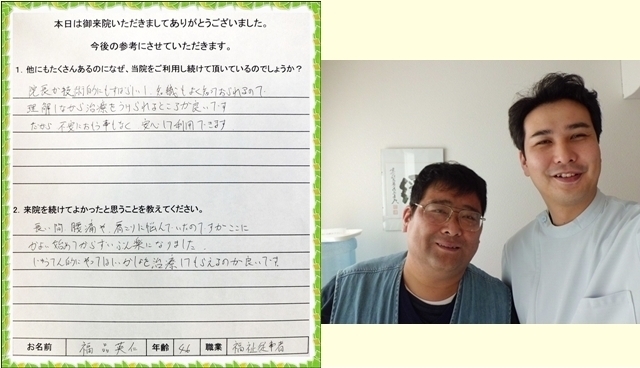 本日は御来院いただきましてありがとうございました。
今後の参考にさせていただきます。
1. 他にもたくさんあるのになぜ、当院をご利用し続けて頂いているのでしょうか？
院長が技術的にもすばらしいし、知識もよく知っておられるので
理解しながら治療をうけられるところが良いです
だから不安におもう事もなく 安心して利用できます
2. 来院を続けてよかったと思うことを教えてください。
長い間、腰痛や、肩こりに悩んでいたのですがここに
かよい始めてからずいぶん楽になりました。
やってほしいかしょを治療してもらえるのが良いです。
お名前 福品英仁 年齢 46 職業 福祉従事者